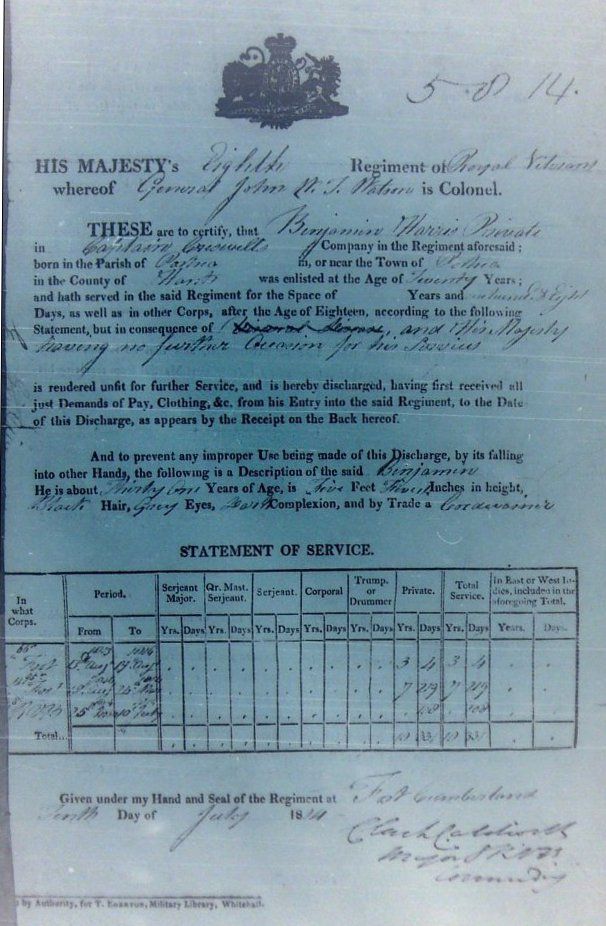 5 . 8 14.
HIS MAJESTY's Eighth Regiment of Royal Veterans
whereof General John W. T. Watson is Colonel.
THESE are to certify, that Benjamin Harris Private
in Captain Company in the Regiment aforesaid;
born in the Parish of Portsea in, or near the Town of
in the County of Hants was enlisted at the Age of Twenty Years;
and hath served in the said Regiment for the Space of Years and Eight
Days, as well as in other Corps, after the Age of Eighteen, according to the following
Statement, but in consequence of and His Majesty
having no further Occasion for his Services
is rendered unfit for further Service, and is hereby discharged, having first received all
just Demands of Pay, Clothing, &c. from his Entry into the said Regiment, to the Date
of this Discharge, as appears by the Receipt on the Back hereof.
And to prevent any improper Use being made of this Discharge, by its falling
into other Hands, the following is a Description of the said Benjamin
He is about Thirty One Years of Age, is Five Feet Inches in height,
Black Hair, Grey Eyes, Dark Complexion, and by Trade a Cordwainer
STATEMENT OF SERVICE.
In what Corps. Period. Serjeant Major. Qr. Mast. Serjeant. Serjeant. Corporal Trump. or Drummer Private. Total Service. In East or West Indies, included in the foregoing Total.
From To Yrs. Days Yrs. Days Yrs. Days Yrs. Days Yrs. Days Yrs. Days Yrs. Days Years. Days.
66 Foot 3 4 3 4
7 219 7 219
108 108
Total... 10 331 10 331
Given under my Hand and Seal of the Regiment at Fort Cumberland
Tenth Day of July 1814
by Authority, for T. EGERTON, Military Library, Whitehall.